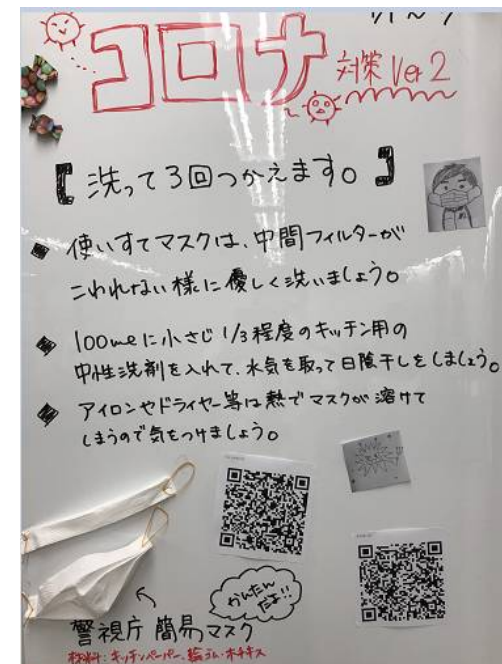 コロナ 対策 Ver 2
【洗って3回つかえます。】
使いすてマスクは、中間フィルターが
こわれない様に優しく洗いましょう。
100mlに小さじ1/3程度のキッチン用の
中性洗剤を入れて、水気を取って日陰干しをしましょう。
アイロンやドライヤー等は熱でマスクが溶けて
しまうので気をつけましょう。
かんたん
だよ!!
警視庁 簡易マスク
材料:キッチンペーパー、輪ゴム・ホチキス